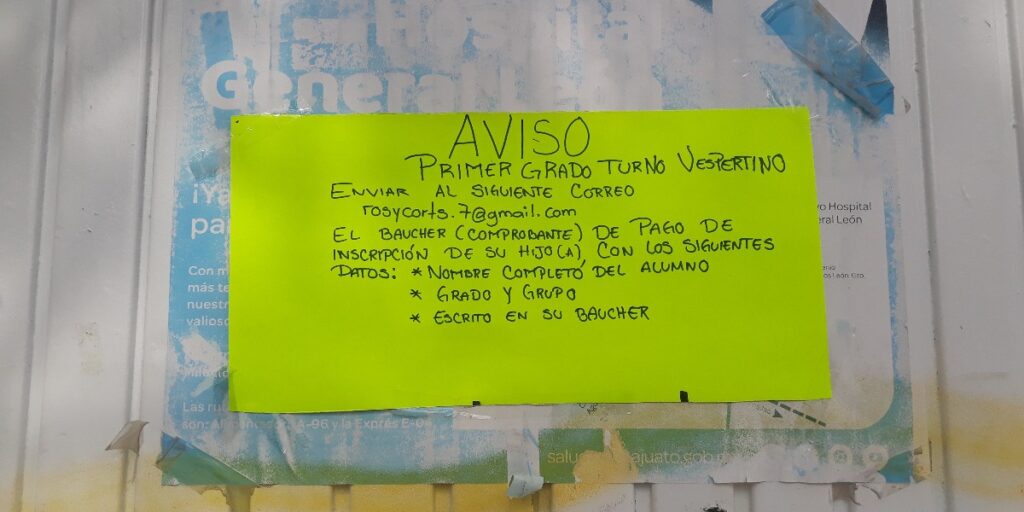 Hospital
General León
AVISO
PRIMER GRADO TURNO VESPERTINO
ENVIAR AL SIGUIENTE CORREO
rosycorts.7@gmail.com
EL BAUCHER (COMPROBANTE) DE PAGO DE
INSCRIPCIÓN DE SU HIJO(A), CON LOS SIGUIENTES
DATOS: * NOMBRE COMPLETO DEL ALUMNO
* GRADO Y GRUPO
* ESCRITO EN SU BAUCHER
¡Ya
pa
vo Hospital
eral León
Con m
más te
nuestr
valioso
Las ru
son: A-96 y la Exprés E-04